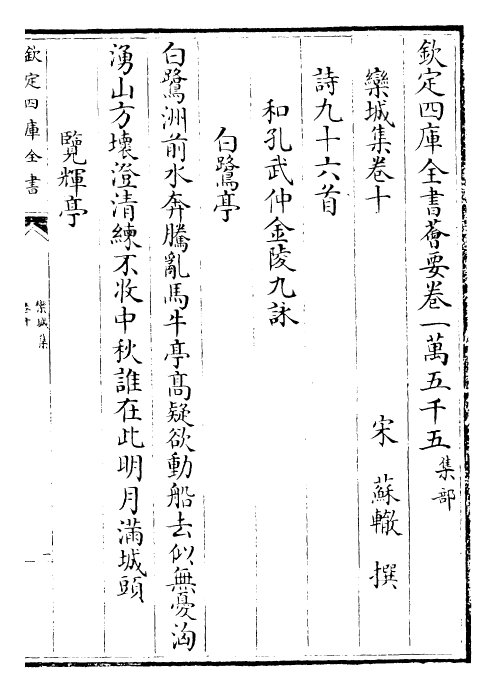 欽定四庫全書薈要卷一萬五千五集部
欒城集卷十
宋蘇轍撰
詩九十六首
和孔武仲金陵九詠
白鷺亭
白鷺洲前水奔騰亂馬牛亭高疑欲動船去似無憂洶
湧山方壞澄清練不收中秋誰在此明月滿城頭
覽輝亭
欽定四庫全書
欒城集
卷十
一